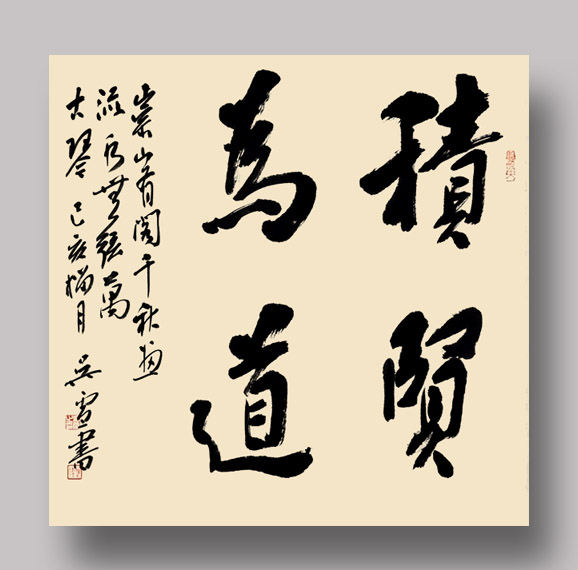 積賢
為道
崇山有閣千秋畫
流水無弦萬
古琴 己亥臘月 吳雪書